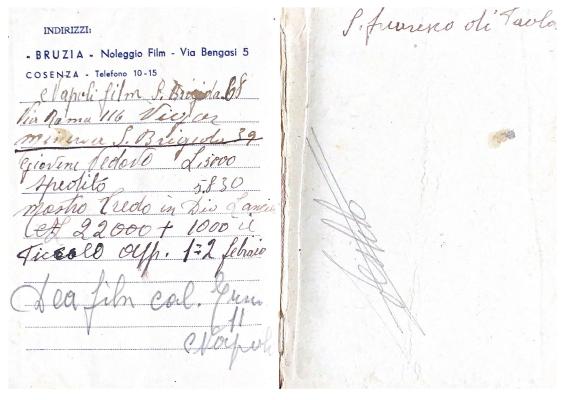 INDIRIZZI:
- BRUZIA - Noleggio Film - Via Bengasi 5
COSENZA - Telefono 10-15
Napoli film S. Brigida 68
Via Roma 116
minerva S. Brigida 39
Giovane Vedovo L. 5000
Spedito 5.830
mostro Credo in Dio
22000 + 1000
Piccolo Alp. 1=2 febraio
Dea film cal.
11
Napoli
S. francesco di Paola